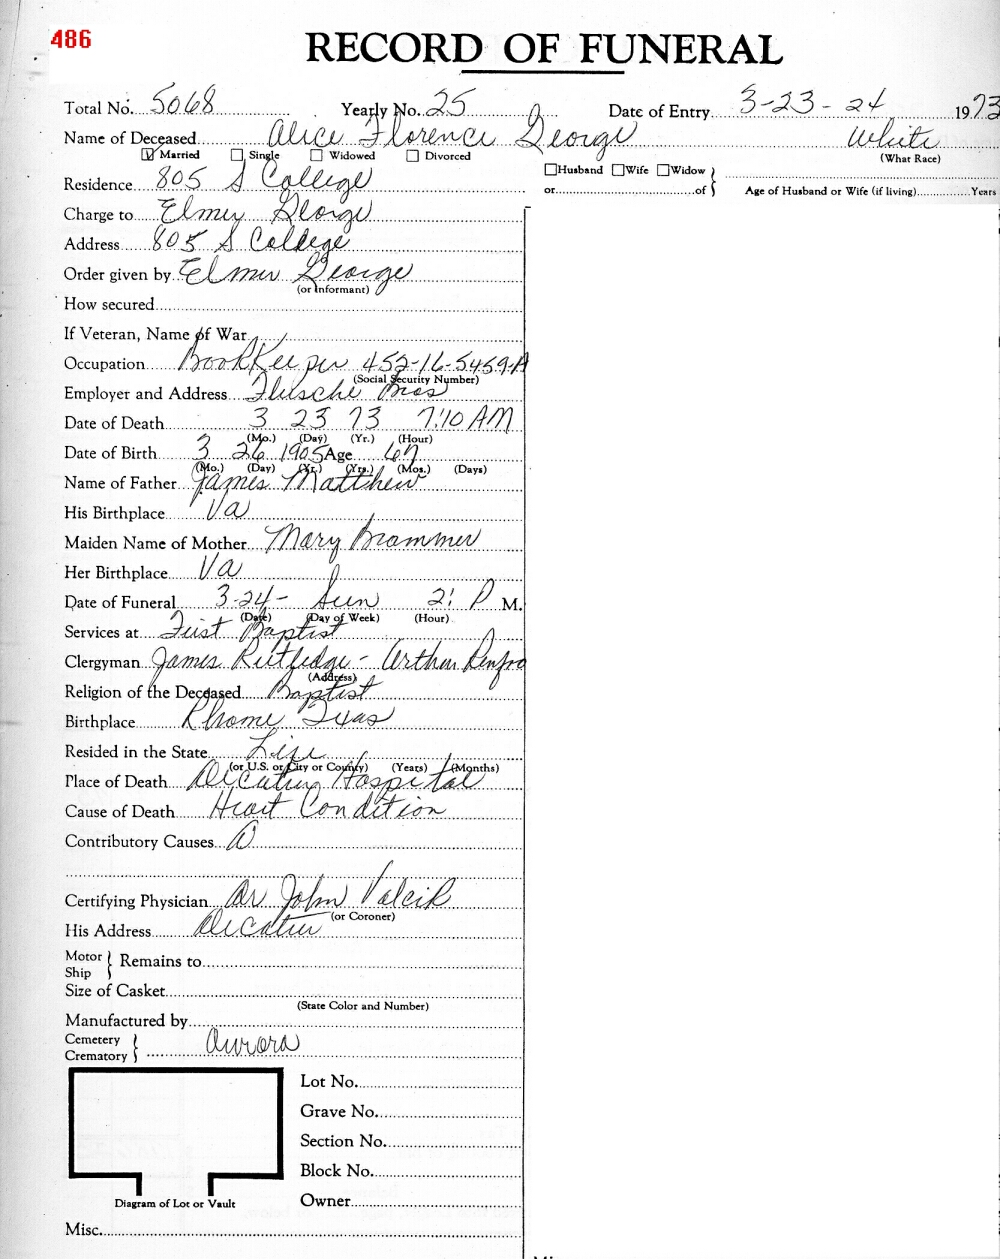 486
RECORD OF FUNERAL
Total No. 5068 Yearly No. 25 Date of Entry 3-23-24 1973
Name of Deceased Alice Florence George White
Married Single Widowed Divorced (What Race)
Husband Wife Widow
Residence 805 S College or of Age of Husband or Wife (if living) Years
Charge to Elmer George
Address 805 S College
Order given by Elmer George
(or Informant)
How secured
If Veteran, Name of War
Occupation BookKeeper 452-16-5459-A
(Social Security Number)
Employer and Address Flusche Bros
Date of Death 3 23 73 7:10 AM
(Mo.) (Day) (Yr.) (Hour)
Date of Birth 3 26 1905 Age 67
(Mo.) (Day) (Yr.) (Yrs.) (Mos.) (Days)
Name of Father James Matthew
His Birthplace Va
Maiden Name of Mother Mary Brammer
Her Birthplace Va
Date of Funeral 3-24- Sun 2: P M.
(Date) (Day of Week) (Hour)
Services at First Baptist
Clergyman James Rutledge - Arthur Renfro
(Address)
Religion of the Deceased Baptist
Birthplace Rhome Texas
Resided in the State Life
(or U.S. or City or County) (Years) (Months)
Place of Death Decatur Hospital
Cause of Death Heart Condition
Contributory Causes
Certifying Physician Dr John Valcik
(or Coroner)
His Address Decatur
Motor Ship Remains to
Size of Casket
(State Color and Number)
Manufactured by
Cemetery Crematory Aurora
Lot No.
Grave No.
Section No.
Block No.
Owner
Diagram of Lot or Vault
Misc.